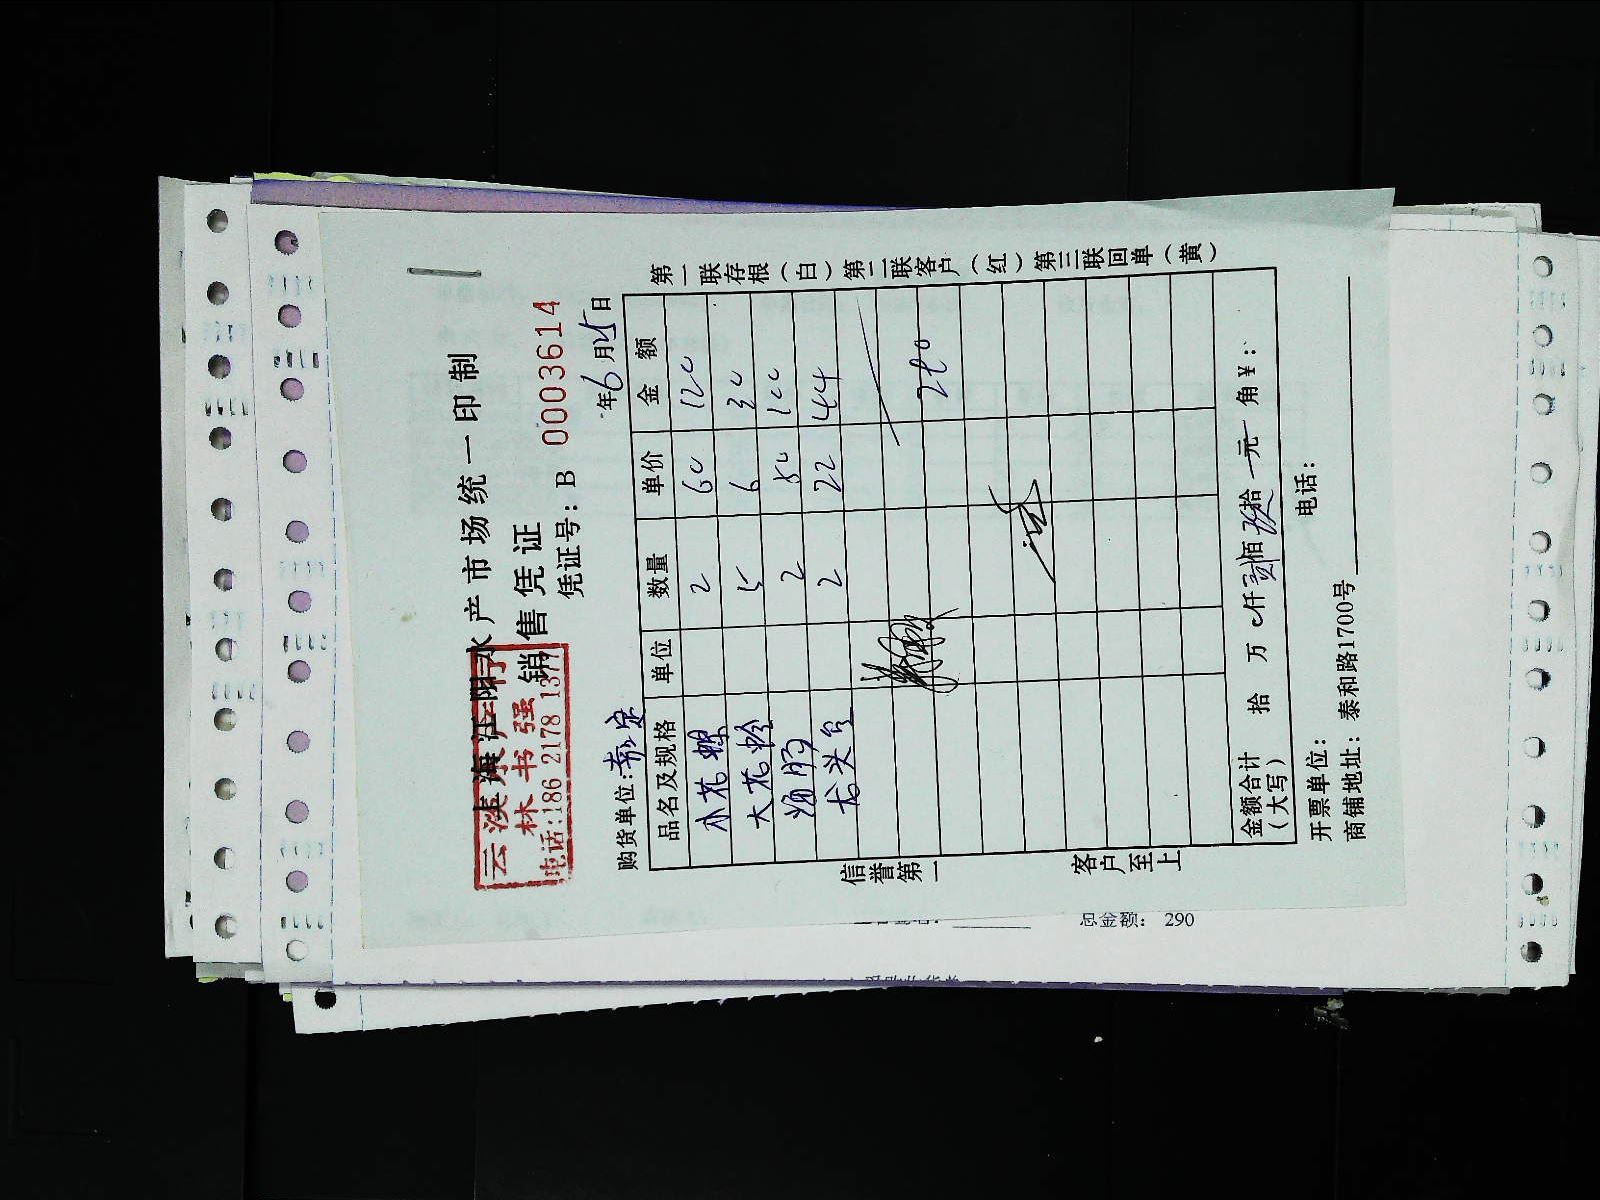 上海江阳水产市场统一印制
销售凭证
林书强
电话:186 2178 1377
凭证号:B 0003614
购货单位:
年6月25日
品名及规格 单位 数量 单价 金额
水花螺 2 60 120
大花蛤 5 6 30
海肠 2 50 100
龙头 2 22 44
金额合计(大写) 拾 万 仟贰佰玖拾 元 角¥:
开票单位: 电话:
商铺地址:泰和路1700号
信誉第一
客户至上
第一联存根(白)第二联客户(红)第三联回单(黄)
总金额: 290